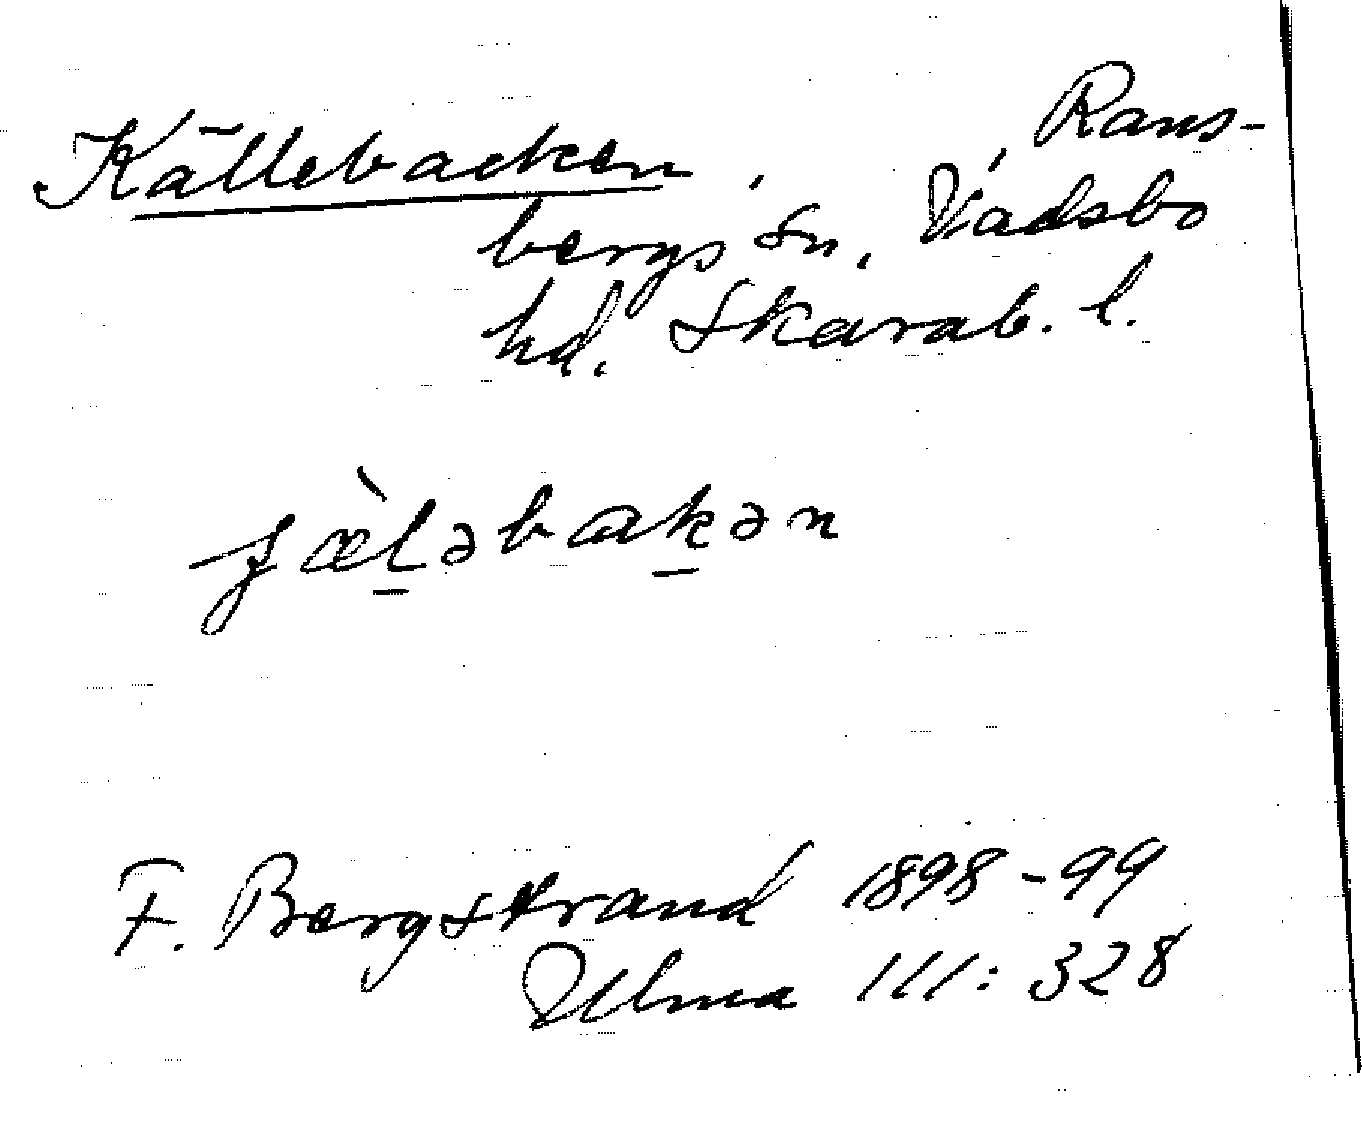 Källebacken, Rans-
bergs sn, Vadsbo
hd. Skarab. l.
F. Bergstrand 1898-99
Ulma 111: 328